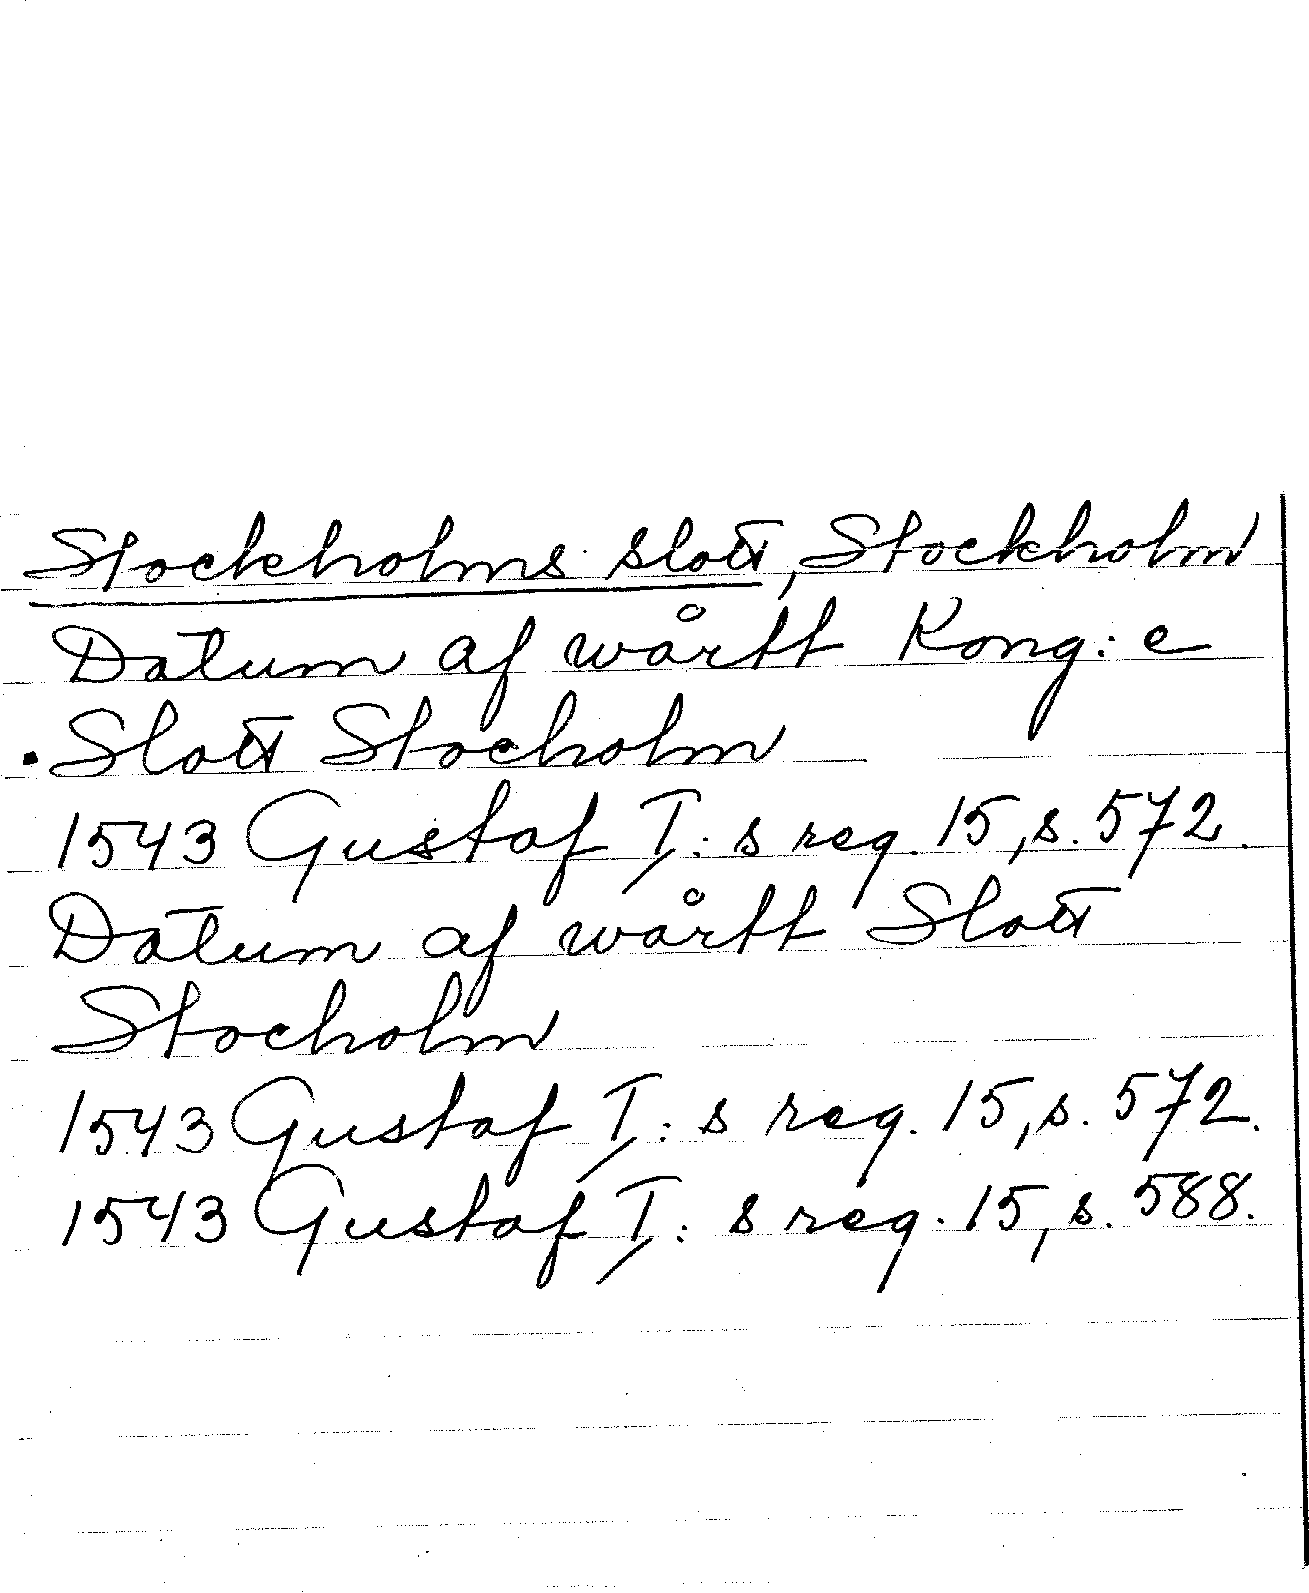 Stockholms slott, Stockholm
Datum af wårtt Kong: e
Slott Stocholm
1543 Gustaf I: s reg. 15, s. 572.
Datum af wårtt Slott
Stocholm
1543 Gustaf I: s reg. 15, s. 572.
1543 Gustaf I: s reg. 15, s. 588.